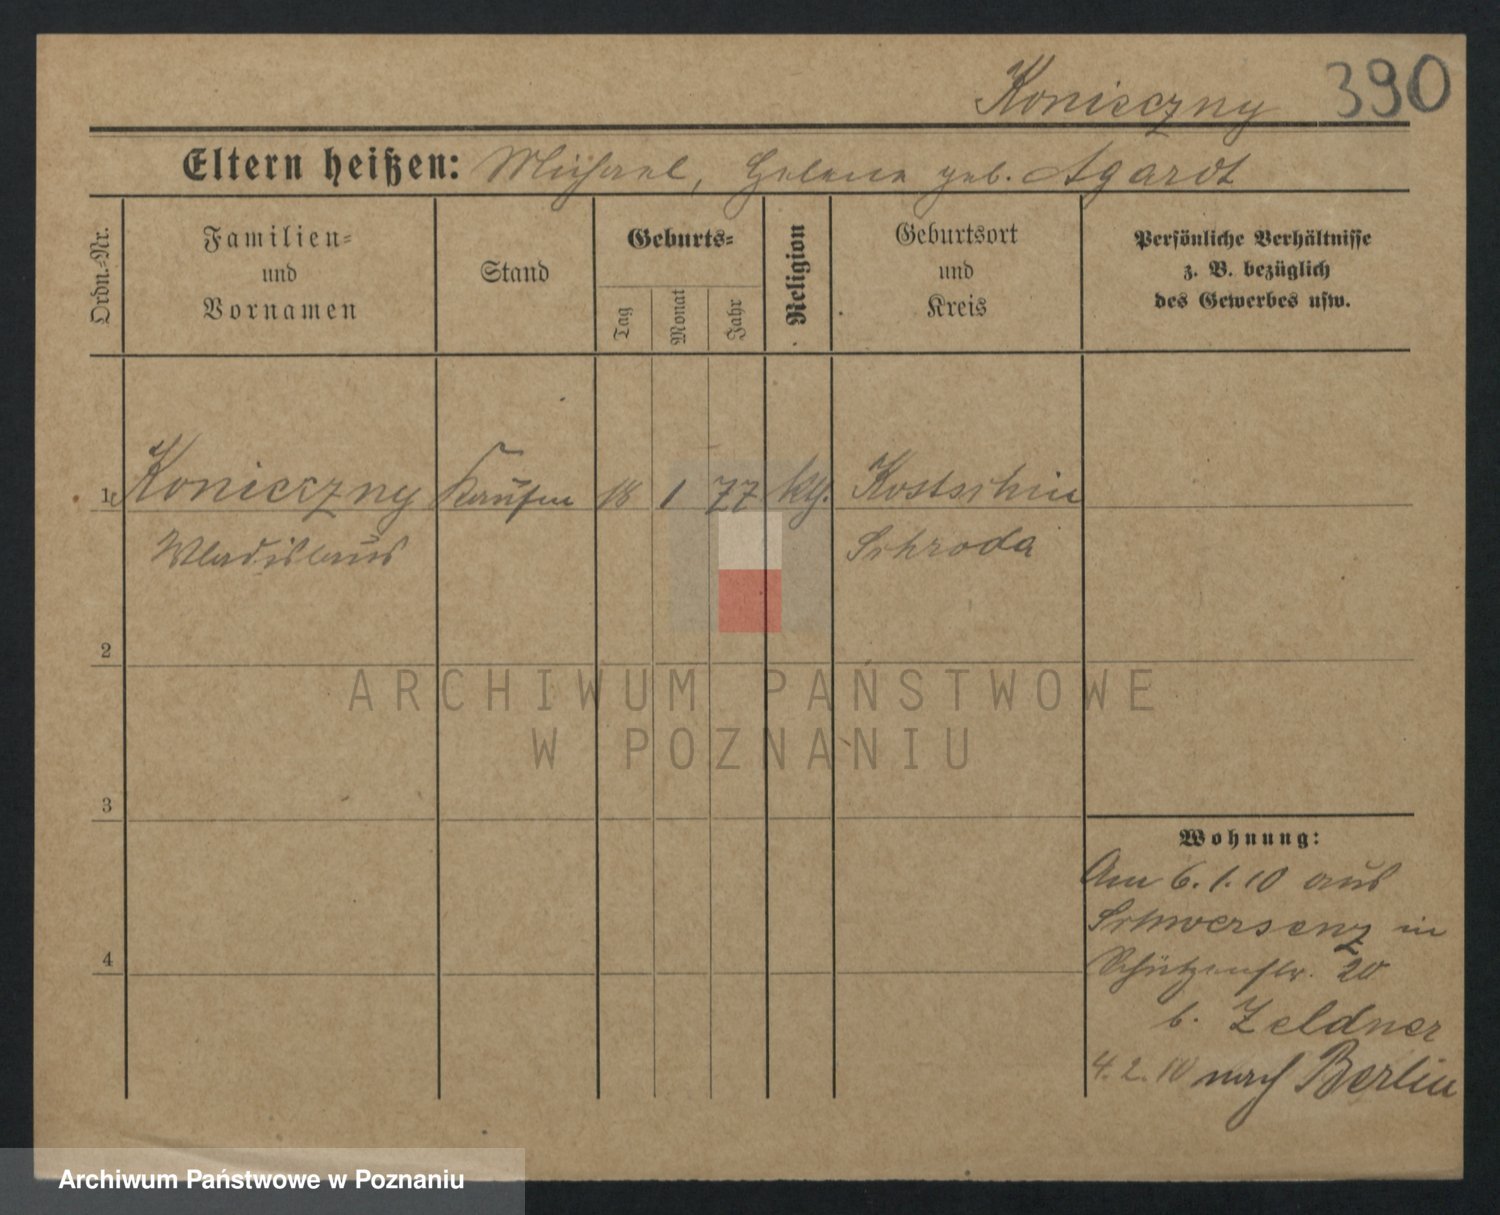 Konieczny 390
Eltern heißen: Michael, Helena geb. Agardt
Ordn.-Nr.
Familien-
und
Vornamen
Stand
Geburts-
Tag
Monat
Jahr
Religion
Geburtsort
und
Kreis
Persönliche Verhältnisse
z. B. bezüglich
des Gewerbes usw.
1 Konieczny Kaufm 18 1 77 kth. Kostschin
Wladislaus Schroda
2
ARCHIWUM PAŃSTWOWE
W POZNANIU
3
Wohnung:
Am 6.1.10 aus
Schwersenz in
4 Schützenstr. 20
b. Zeldner
4.2.10 nach Berlin
Archiwum Państwowe w Poznaniu